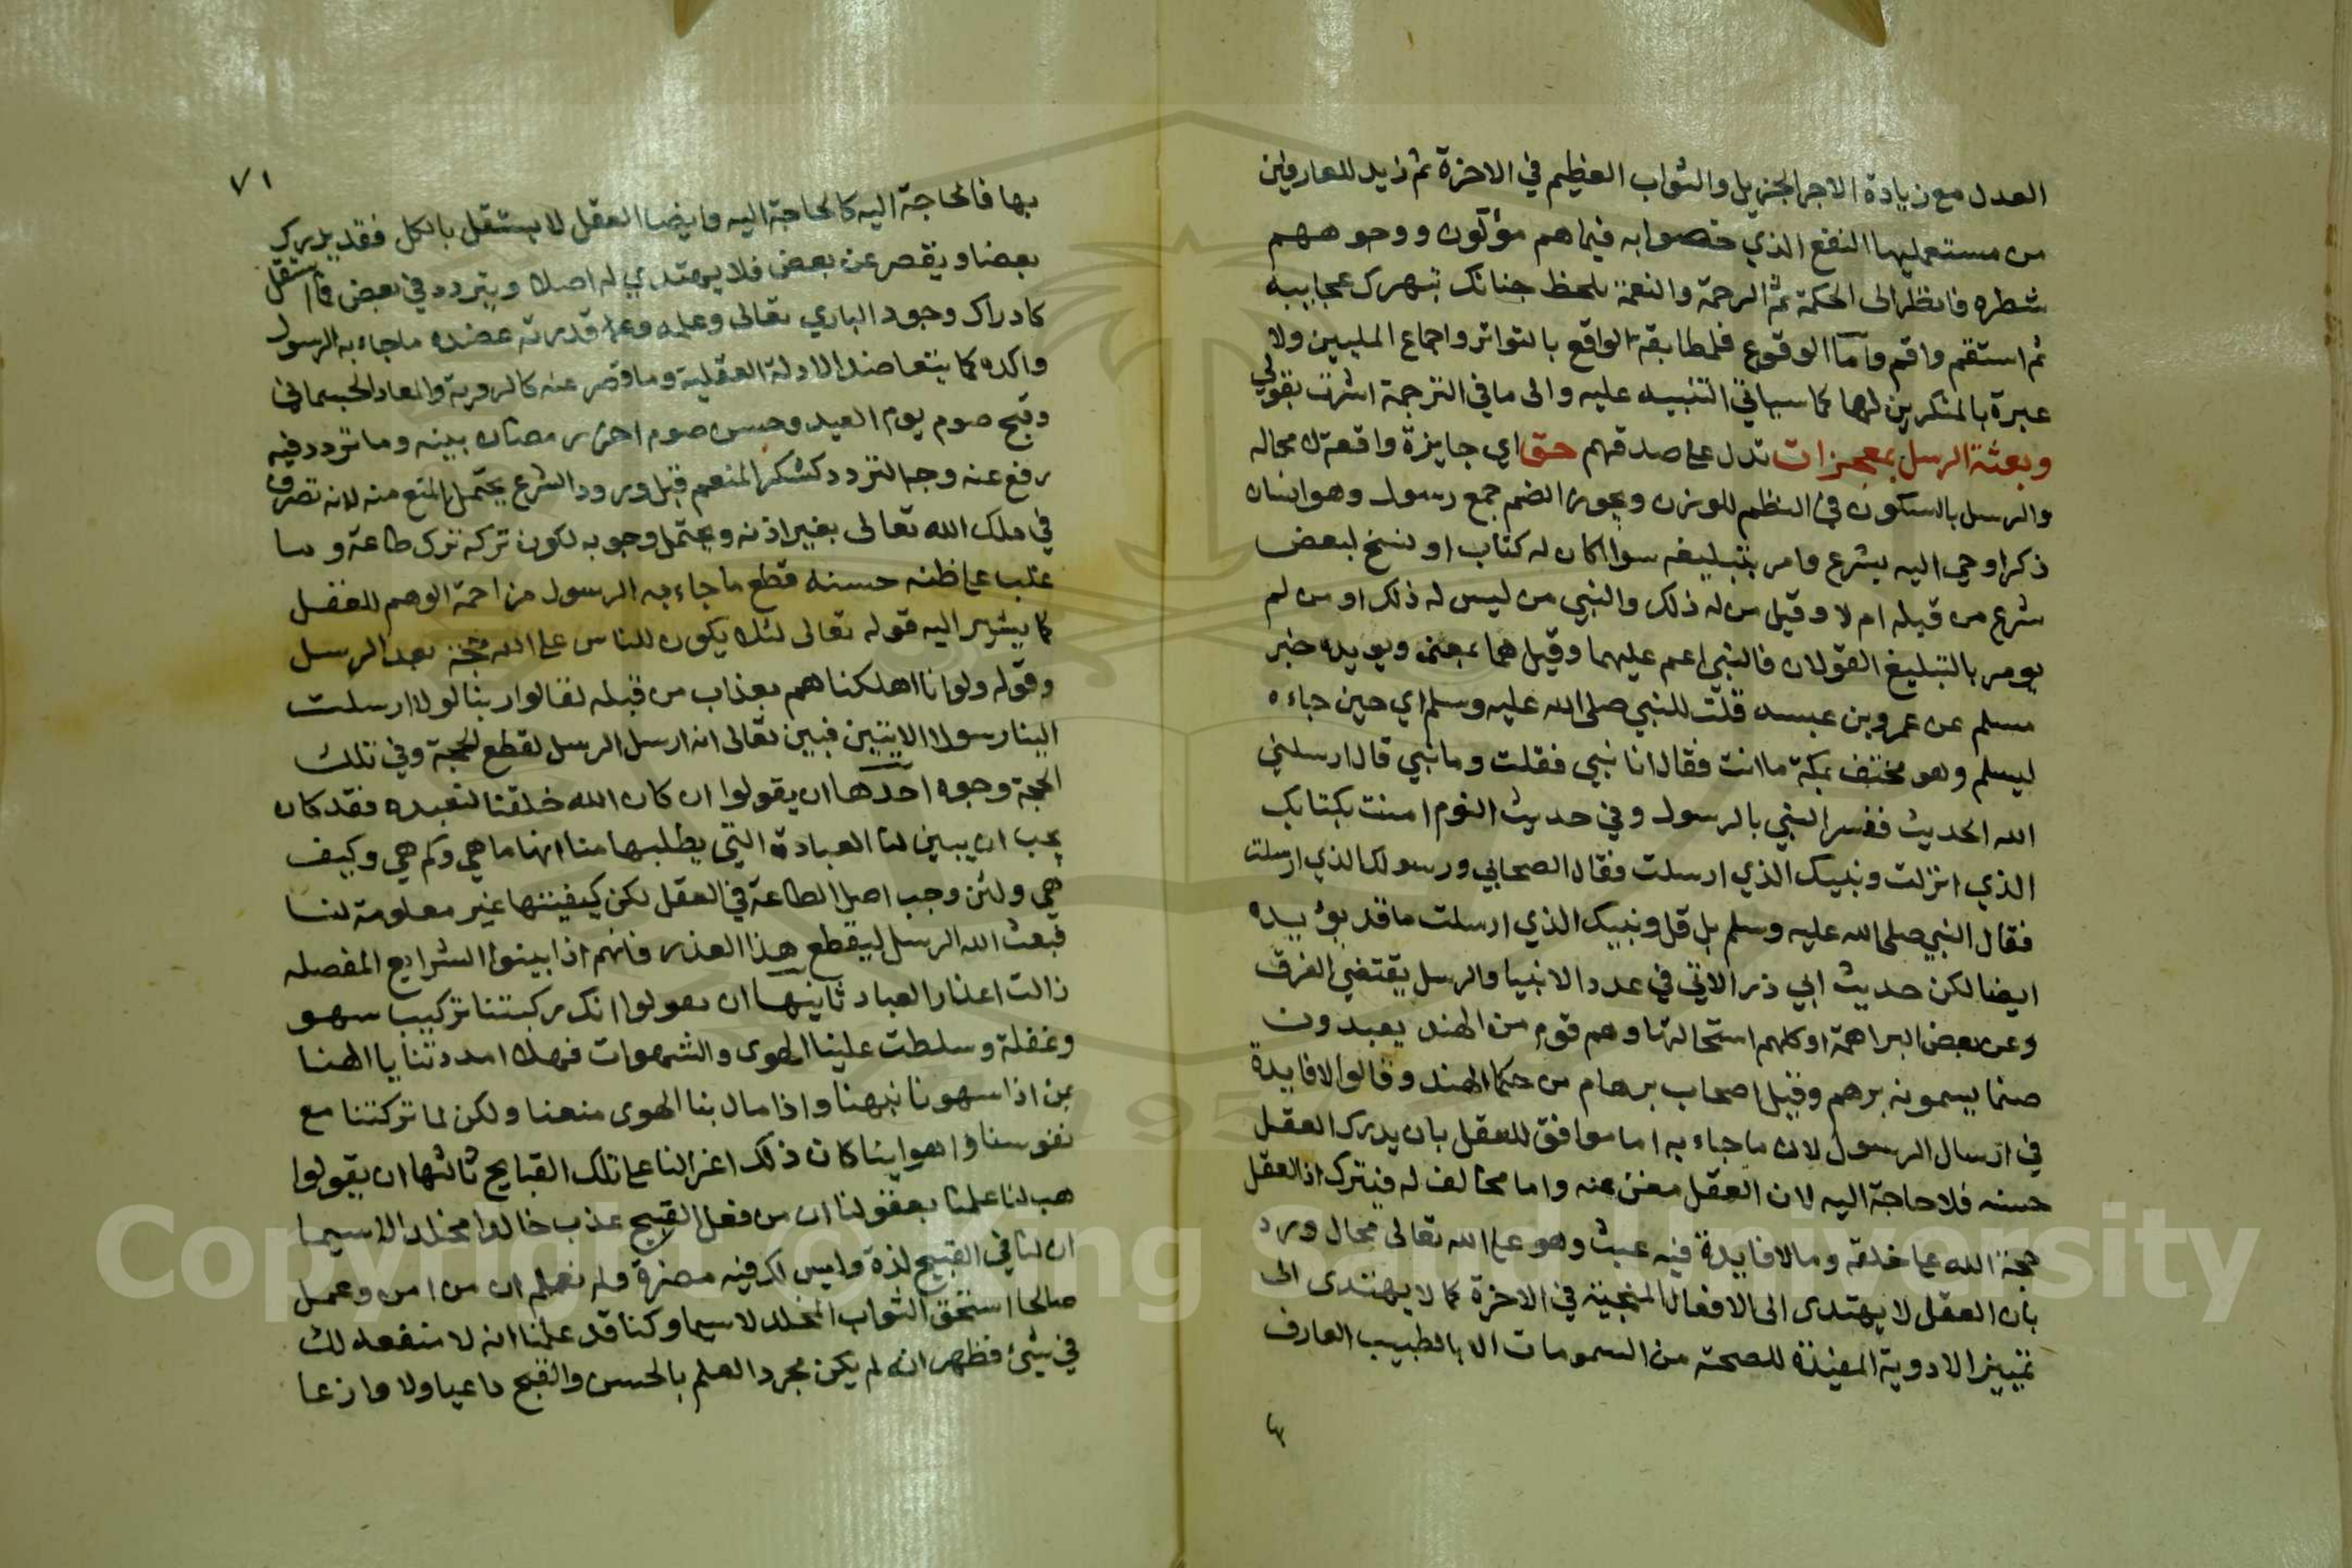 العدل مع زيادة الاجر الجزيل والثواب العظيم في الاخرة ثم زيد للعارفين
من مستعمليها النفع الذي خصوا به فيما هم مؤلون ووجوههم
شطره فانظر الى الحكمة ثم الرحمة والنعمة بلحظ جنانك تبهرك عجايبه
ثم استقم واقم واما الوقوع فلمطابقة الواقع بالتواتر واجماع المليين ولا
عبرة بالمنكرين لها كما سياتي التنبيه عليه والى ما في الترجمة اشرت بقولي
وبعثة الرسل بمعجزات تدل على صدقهم حق اي جايزة واقعة لا محاله
والرسل بالسكون في النظم للوزن ويجوز الضم جمع رسول وهو انسان
ذكر اوحي اليه بشرع وامر بتبليغه سوا اكان له كتاب او نسخ لبعض
شرع من قبله ام لا وقيل من له ذلك والنبي من ليس له ذلك او من لم
يومر بالتبليغ القولان فالنبي اعم عليهما وقيل هما بمعنى ويويده خبر
مسلم عن عمرو بن عبسه قلت للنبي صلى الله عليه وسلم اي حين جاءه
ليسلم وهو مختف بمكة ما انت فقال انا نبي فقلت وما نبي قال ارسلني
الله الحديث ففسر النبي بالرسول وفي حديث النوم امنت بكتابك
الذي انزلت ونبيك الذي ارسلت فقال الصحابي ورسولك الذي ارسلت
فقال النبي صلى الله عليه وسلم بل قل ونبيك الذي ارسلت ما قد يؤيده
ايضا لكن حديث ابي ذر الاتي في عدد الانبيا والرسل يقتضي الفرق
وعن بعض البراهمة او كلهم استحالتها وهم قوم من الهند يعبدون
صنما يسمونه برهم وقيل اصحاب برهام من حكما الهند وقالوا لا فايدة
في ارسال الرسول لان ما جاء به اما موافق للعقل بان يدرك العقل
حسنه فلا حاجة اليه لان العقل مغن عنه واما مخالف له فيترك اذ العقل
حجة الله على خلقه وما لا فايدة فيه عبث وهو على الله تعالى محال ورد
بان العقل لا يهتدى الى الافعال المنجية في الاخرة كما لا يهتدى الى
تمييز الادوية المفيدة للصحة من السمومات الا بالطبيب العارف
٧١
بها فالحاجة اليه كالحاجة اليه وايضا العقل لا يستقل بالكل فقد يدرك
بعضا ويقصر عن بعض فلا يهتدي له اصلا ويتردد في بعض فما استقل
كادراك وجود الباري تعالى وعلمه وقدرته عضده ما جاء به الرسول
واكده كما يتعاضد الادلة العقلية وما قصر عنه كالروية والمعاد الجسماني
وقبح صوم يوم العيد وحسن صوم اخر رمضان بينه وما تردد فيه
رفع عنه وجه التردد كشكر المنعم قبل ورود الشرع يحتمل المنع منه لانه تصرف
في ملك الله تعالى بغير اذنه ويحتمل وجوبه لكون تركه ترك طاعة وما
غلب على ظنه حسنه قطع ما جاء به الرسول مزاحمة الوهم للعقل
كما يشير اليه قوله تعالى لئلا يكون للناس على الله حجة بعد الرسل
وقوله ولو انا اهلكناهم بعذاب من قبله لقالوا ربنا لولا ارسلت
الينا رسولا الايتين فبين تعالى انه ارسل الرسل لقطع الحجة وفي تلك
الحجة وجوه احدها ان يقولوا ان كان الله خلقنا لنعبده فقد كان
يجب ان يبين لنا العبادة التي يطلبها منا انها ما هي وكم هي وكيف
هي ولئن وجب اصل الطاعة في العقل لكن كيفيتها غير معلومة لنا
فبعث الله الرسل ليقطع هذا العذر فانهم اذا بينوا الشرايع المفصله
زالت اعذار العباد ثانيها ان يقولوا انك ركبتنا تركيب سهو
وغفلة وسلطت علينا الهوى والشهوات فهلا امددتنا يا الهنا
بمن اذا سهونا نبهنا واذا مال بنا الهوى منعنا ولكن لما تركتنا مع
نفوسنا واهواينا كان ذلك اغرالنا على تلك القبايح ثالثها ان يقولوا
هب لنا علمنا بعقولنا ان من فعل القبيح عذب خالدا مخلدا لا سيما
ان لنا في القبيح لذة وليس لك فيه مضرة ولم نعلم ان من امن وعمل
صالحا استحق الثواب المخلد لا سيما وكنا قد علمنا انه لا منفعه لك
في شيء فظهر انه لم يكن مجرد العلم بالحسن والقبح داعيا ولا وازعا
Copyright © King Saud University
1957